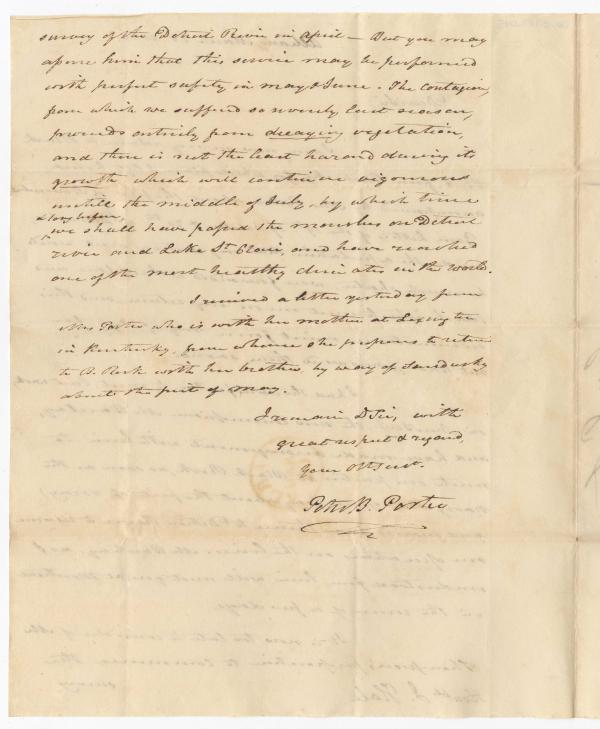 survey of the Detroit River in April — But you may
assure him that this service may be performed
with perfect safety in may & June. The contagion,
from which we suffered so severely last season,
proceeds entirely from decaying vegetation,
and there is not the least hazard during its
growth which will continue vigorous
untill the middle of July, by which time
& long before,
we shall have passed the marshes on Detroit
river and Lake St Clair, and have reached
one of the most healthy climates in the world.
I received a letter yesterday from
Mrs Porter who is with her mother at Lexington
in Kentucky, from whence she proposes to return
to B. Rock with her brother, by way of Sandusky
about the first of may.
I remain D Sir, with
great respect & regard,
your Obt Servt.
Peter B. Porter